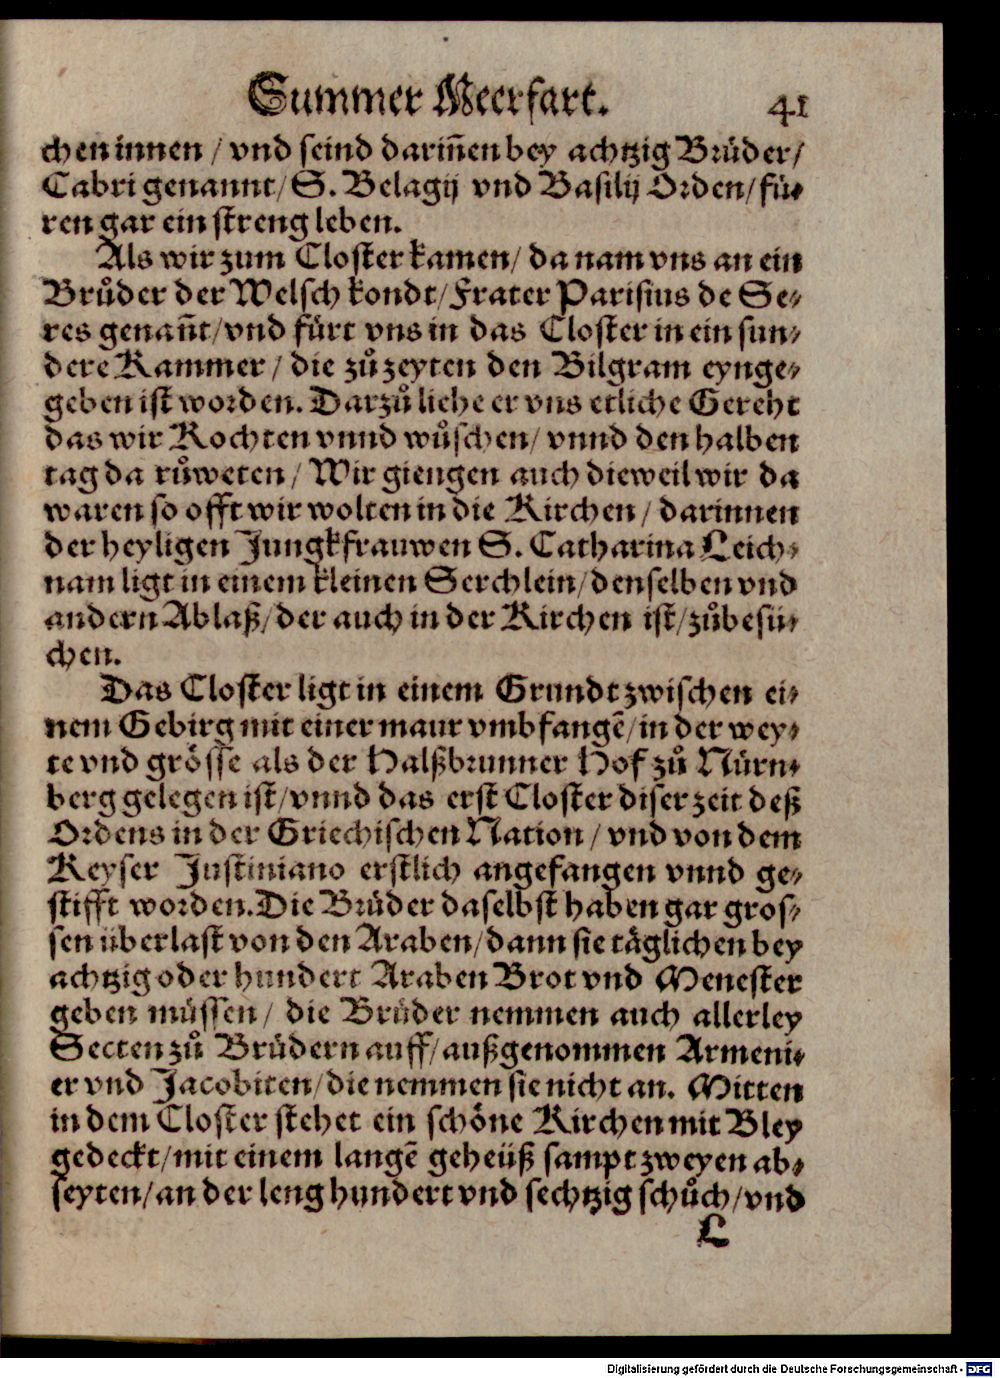 Summer Meerfart. 41
chen innen / vnd seind dariñen bey achtzig Brüder /
Cabri genannt / S. Belagij vnd Basilij Orden / fü-
ren gar ein streng leben.
Als wir zum Closter kamen / da nam vns an ein
Brůder der Welsch kondt / Frater Parisius de Se-
res genañt / vnd fürt vns in das Closter in ein sun-
dere Kammer / die zů zeyten den Bilgram eynge-
geben ist worden. Darzů liehe er vns etliche Gereht
das wir Kochten vnnd wůschen / vnnd den halben
tag da růweten / Wir giengen auch dieweil wir da
waren so offt wir wolten in die Kirchen / darinnen
der heyligen Jungkfrauwen S. Catharina Leich-
nam ligt in einem kleinen Serchlein / denselben vnd
andern Ablaß / der auch in der Kirchen ist / zůbesü-
chen.
Das Closter ligt in einem Grundt zwischen ei-
nem Gebirg mit einer maur vmbfangē / in der wey-
te vnd grösse als der Halßbrunner Hof zů Nürn-
berg gelegen ist / vnnd das erst Closter diser zeit deß
Ordens in der Griechischen Nation / vnd von dem
Keyser Justiniano erstlich angefangen vnnd ge-
stifft worden. Die Brüder daselbst haben gar gros-
sen überlast von den Araben / dann sie täglichen bey
achtzig oder hundert Araben Brot vnd Menester
geben müssen / die Brüder nemmen auch allerley
Secten zů Brüdern auff / außgenommen Armeni-
er vnd Jacobiten / die nemmen sie nicht an. Mitten
in dem Closter stehet ein schöne Kirchen mit Bley
gedeckt / mit einem langē geheüß sampt zweyen ab-
seyten / an der leng hundert vnd sechtzig schůch / vnd
L
Digitalisierung gefördert durch die Deutsche Forschungsgemeinschaft - DFG